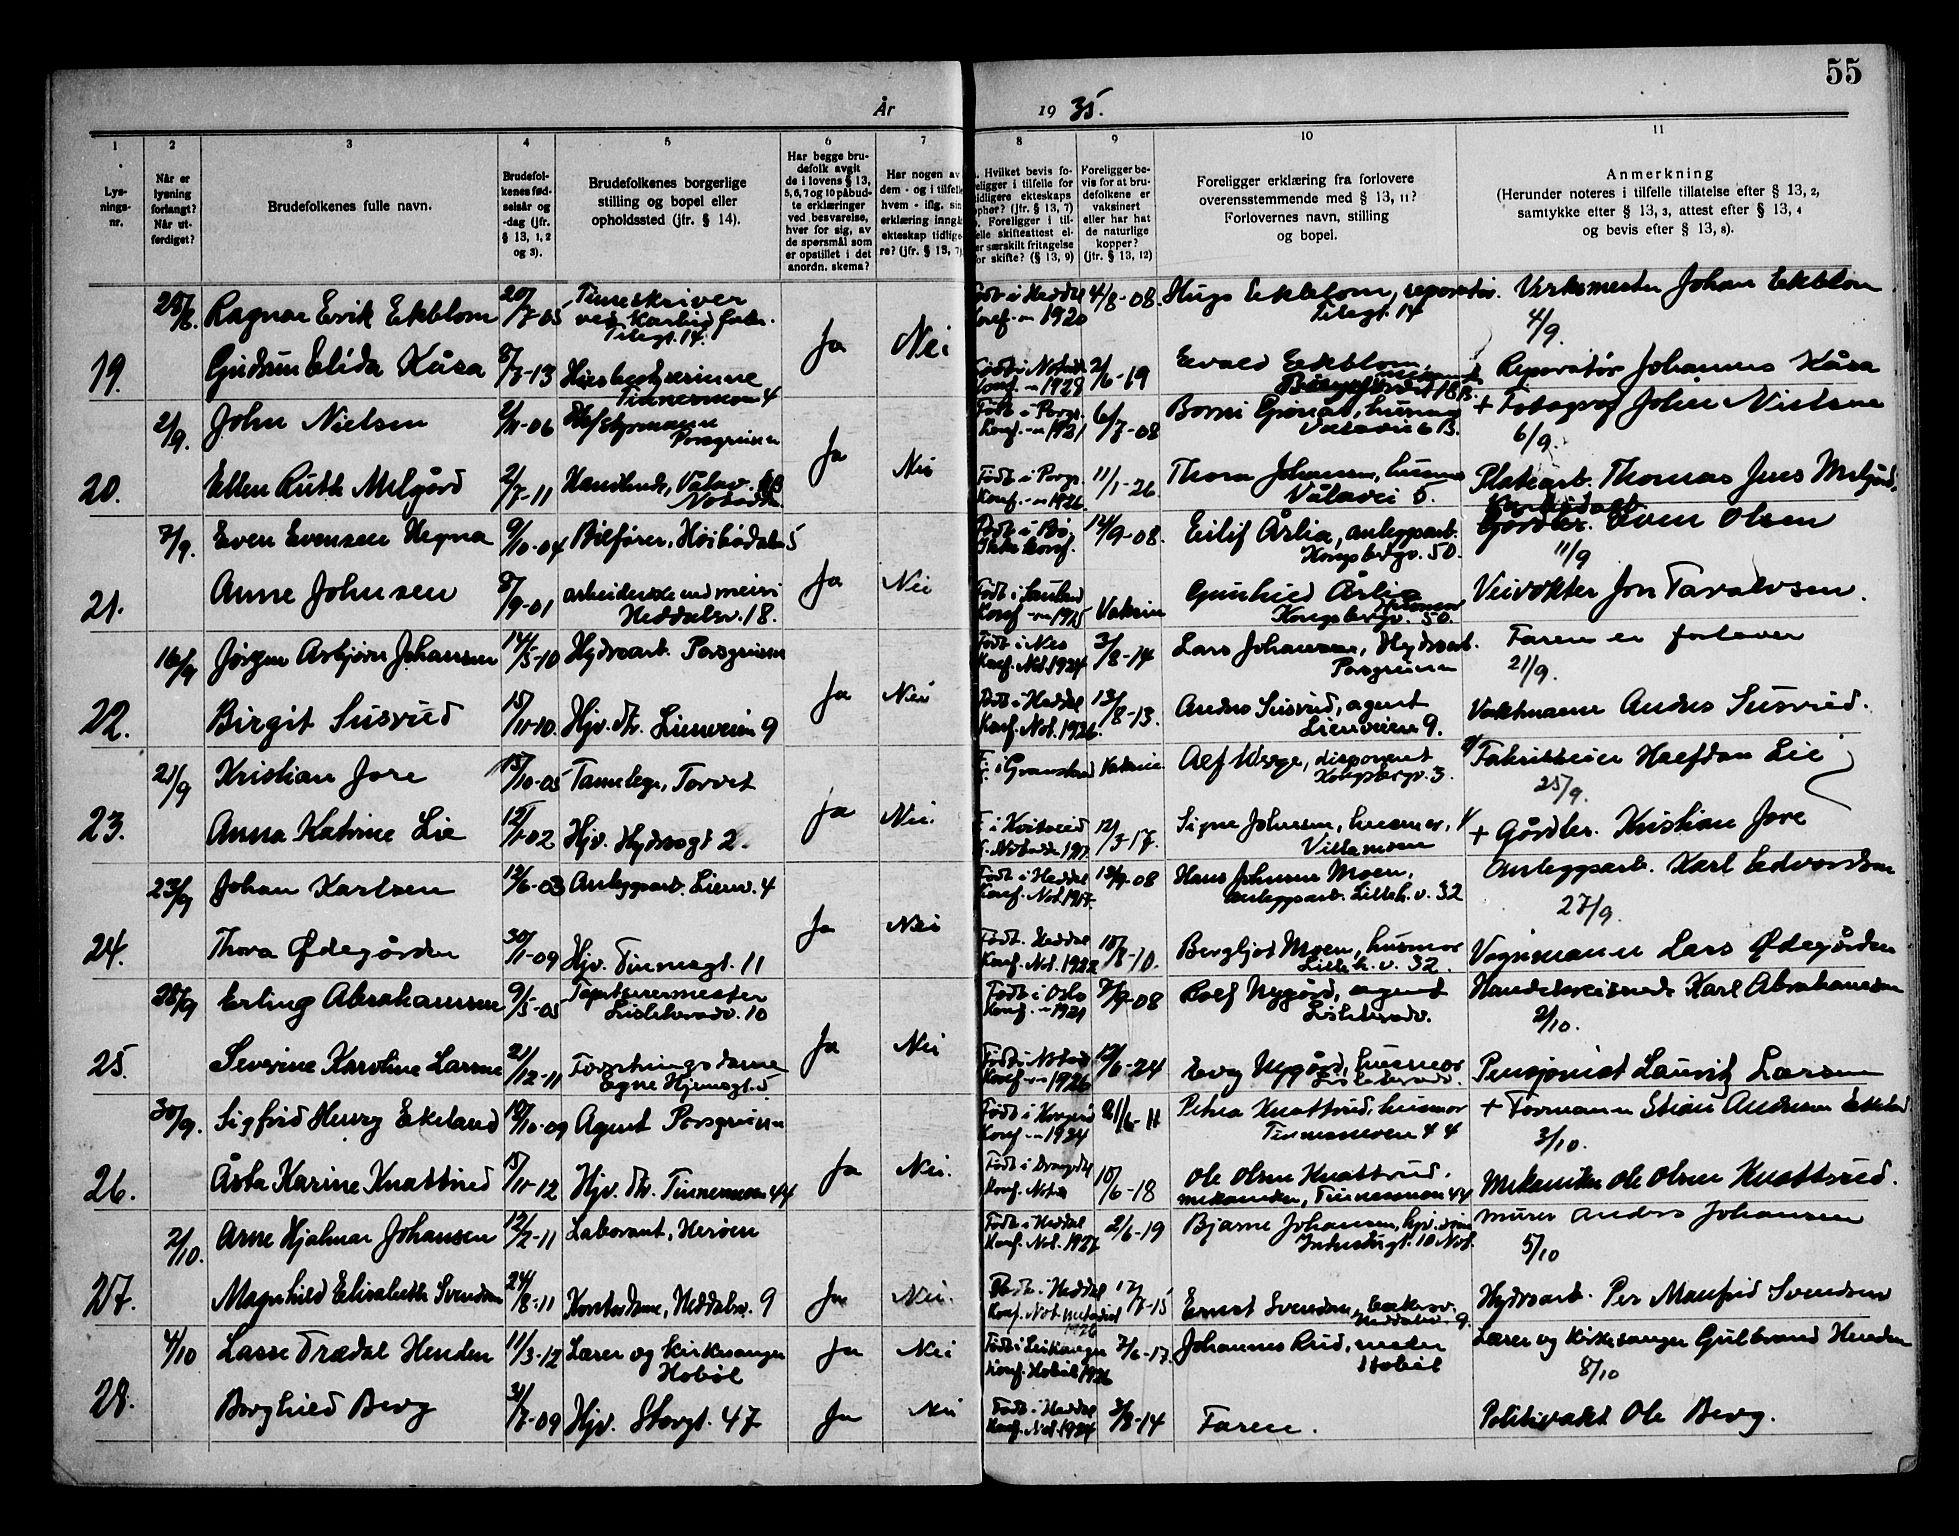 55
År 1935.
1 2 3 4 5 6 7 8 9 10 11
Lysningsnr.
Når er lysning forlangt? Når utferdiget?
Brudefolkenes fulle navn.
Brudefolkenes fødselsår og -dag (jfr. § 13, 1, 2 og 3).
Brudefolkenes borgerlige stilling og bopel eller opholdssted (jfr. § 14).
Har begge brudefolk avgit de i lovens § 13, 5, 6, 7 og 10 påbudte erklæringer ved besvarelse, hver for sig, av de spørsmål som er opstillet i det anordn. skema?
Har nogen av dem - og i tilfelle hvem - iflg. sin erklæring inngått ekteskap tidligere? (jfr. § 13, 7)
Foreligger bevis for at brudefolkene er vaksinert eller har hat de naturlige kopper? (jfr. § 13, 12)
Foreligger erklæring fra forlovere overensstemmende med § 13, 11? Forlovernes navn, stilling og bopel.
Anmerkning
(Herunder noteres i tilfelle tillatelse efter § 13, 2, samtykke efter § 13, 3, attest efter § 13, 4 og bevis efter § 13, 8).
Ragnar Erik Ekblom 20/7-05 Timeskriver ved Karbidfabr. Tilsgt. 14. Født i Heddal Konf. -"- 1920 4/8-08. Hugo Ekblom, reparatør. Tilsgt. 14 Verksmester Johan Ekblom
4/9.
19. Gudrun Elida Kåsa 8/7-13 Husbestyrerinne Tinnesmoen 4 Ja Nei 2/6-19 Evald Ekblom Reparatør Johannes Kåsa
2/9. John Nielsen Porsgrunn Født i Porsgr. Konf. -"- 1921 6/7-08 husmor Valavei 6 B. + Fotograf John Nielsen
6/9.
20. Ellen Ruth Melgård 2/7-11 Valav. Notodden Ja Nei Født i Porsgr. Konf. -"- 1926. 11/1-26 Thora Johansen, husmor Valavei 5. Platearb. Thomas Jens Melgård.
7/9. Even Evensen Hegna 9/10-04 Bilfører, Høibødalen 5 Født i Bø, Ikke konf. 12/9-08. Eilif Århia, anleggsarb. Kongsbergv. 50. Gårdbr. Even Olsen
11/9
21. Anne Johnsen 8/9-01 arbeiderske ved meieri Heddalsv. 18. Ja Nei Født i Sauland Konf. -"- 1915 Vaksin Gunhild Århia husmor Kongsbergv. 50. Veivokter Jon Tarvaldsen.
16/9 Jørgen Asbjørn Johansen 14/5-10 Hydroarb. Porsgrunn Født i Nes Konf. Not. 1924 3/8-14 Lars Johansen, Hydroarb. Porsgrunn Faren er forlover
21/9.
22. Birgit Susrud 15/11-10. Hjv. dtr. Lienveien 9 Ja Nei Født i Heddal Konf. Not. 1926. 13/8-13. Andres Susrud, agent Lienveien 9. Vaktmann Andres Susrud.
21/9 Kristian Jore 15/10-05 Tannlege, Torvet Vaksin disponent Kongsbergv. 3. Fabrikkeier Halfdan Lie
25/9.
23. Anna Katrine Lie 12/1-02 Hjv. Hydrogt 2 Ja Nei. F. i Kviteseid 12/3-17. Signe Johnsen, husmor, Villamoen + Gårdbr. Kristian Jore
23/9 Johan Karlsen 12/6-03 Anleggsarb. Lienv. 4 Født i Heddal Konf. Not. 1917. 12/9-08 Hans Johnsen Moen, anleggsarb. Lilleh. v. 32 Anleggsarb. Karl Edvardsen
27/9.
24. Thora Ødegården 30/1-09 Hjv. Tinnesgt. 11 Ja Nei Født. Heddal Konf. Not. 1923 10/8-10. Bergljot Moen, husmor Lilleh. v. 32. Vognmann Lars Ødegården
28/9 Erling Abrahamsen 9/5-05 Tapetserermester Lisleheradv. 10 Født i Oslo 7/9-08 Rolf Nygård, agent Lisleheradv. Handelsreisende Karl Abrahamsen
2/10.
25. Severine Karoline Larsen 21/12-11 Forretningsdame Egne Hjemsgt. 5 Ja Nei Født i Notod. Konf. -"- 1926 12/6-24 Nygård, husmor Lisleheradv. Pensjonist Lauritz Larsen
30/9. Sigfrid Henry Ekeland 12/10-09 Agent Porsgrunn Konf. -"- 1924 21/6-11 Petra Knattrud, husmor Tinnesmoen 44 + Formann Stian Andersen Ekeland
3/10.
26. Åsta Karine Knattrud 15/11-12 Hjv. dtr. Tinnesmoen 44 Ja Nei. Født i Drangedal 10/6-18 Ole Olsen Knattrud, mekaniker, Tinnesmoen 44 Mekaniker Ole Olsen Knattrud.
2/10. Arne Hjalmar Johansen 12/2-11 Laborant, Herøen Født i Heddal Konf. Not. 1927 2/6-19 Bjarne Johansen, Industrigt. 10 Not. murer Anders Johansen
5/10
27. Magnhild Elisabeth Svendsen 24/8-11 Kontordame, Heddalsv. 9 Ja Nei. Født i Heddal 1926 12/7-15 Ernst Svendsen, Heddalsv. 9. Hydroarb. Per Manfrid Svendsen
4/10 Lasse Trædal Henden 11/3-12 Lærer og kirkesanger Hobøl Ja Nei Født i Leikanger Konf. Hobøl 1926 7/6-17. Johannes Rud, Hobøl Lærer og kirkesanger Gulbrand Henden
8/10
28. Borghild Berg 31/7-09 Hjv. Storgt. 47 Ja Nei Født i Heddal Konf. Not. 1924 3/8-14 Faren. Politivakt Ole Berg.